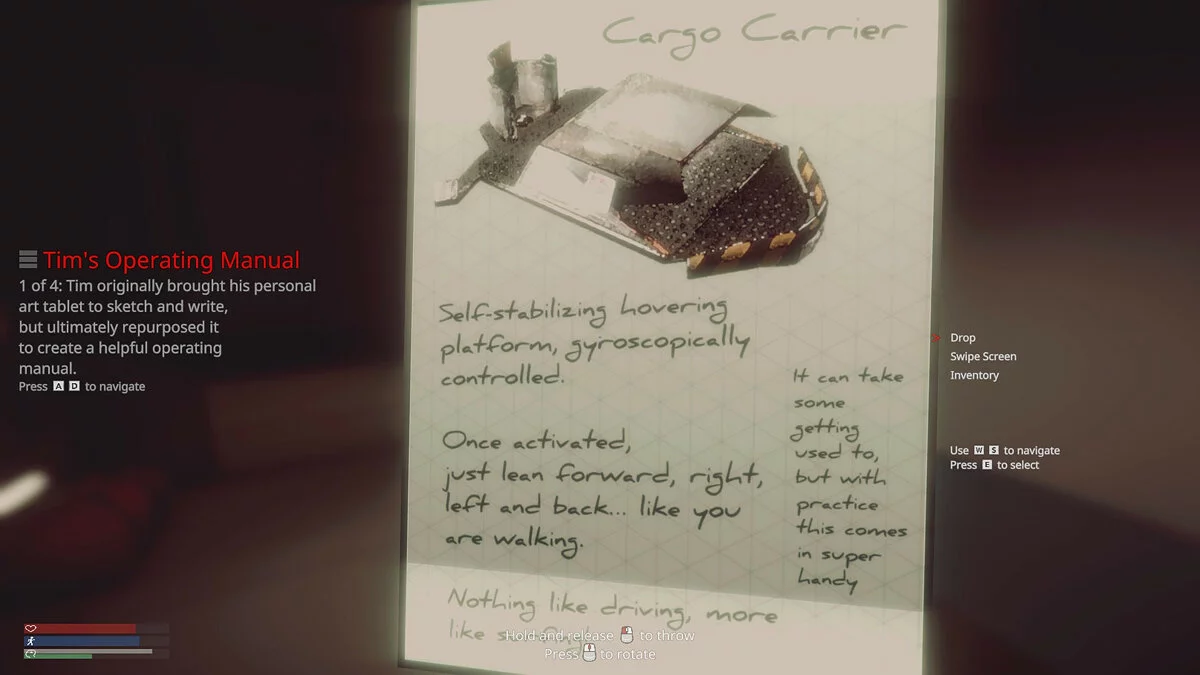 Cargo Carrier
Tim's Operating Manual
1 of 4: Tim originally brought his personal
art tablet to sketch and write,
but ultimately repurposed it
to create a helpful operating
manual.
Press A D to navigate
Self-stabilizing hovering
platform, gyroscopically
controlled.
Once activated,
just lean forward, right,
left and back... like you
are walking.
It can take
some
getting
used to,
but with
practice
this comes
in super
handy
Nothing like driving, more
like
Hold and release to throw
Press to rotate
Drop
Swipe Screen
Inventory
Use W S to navigate
Press E to select